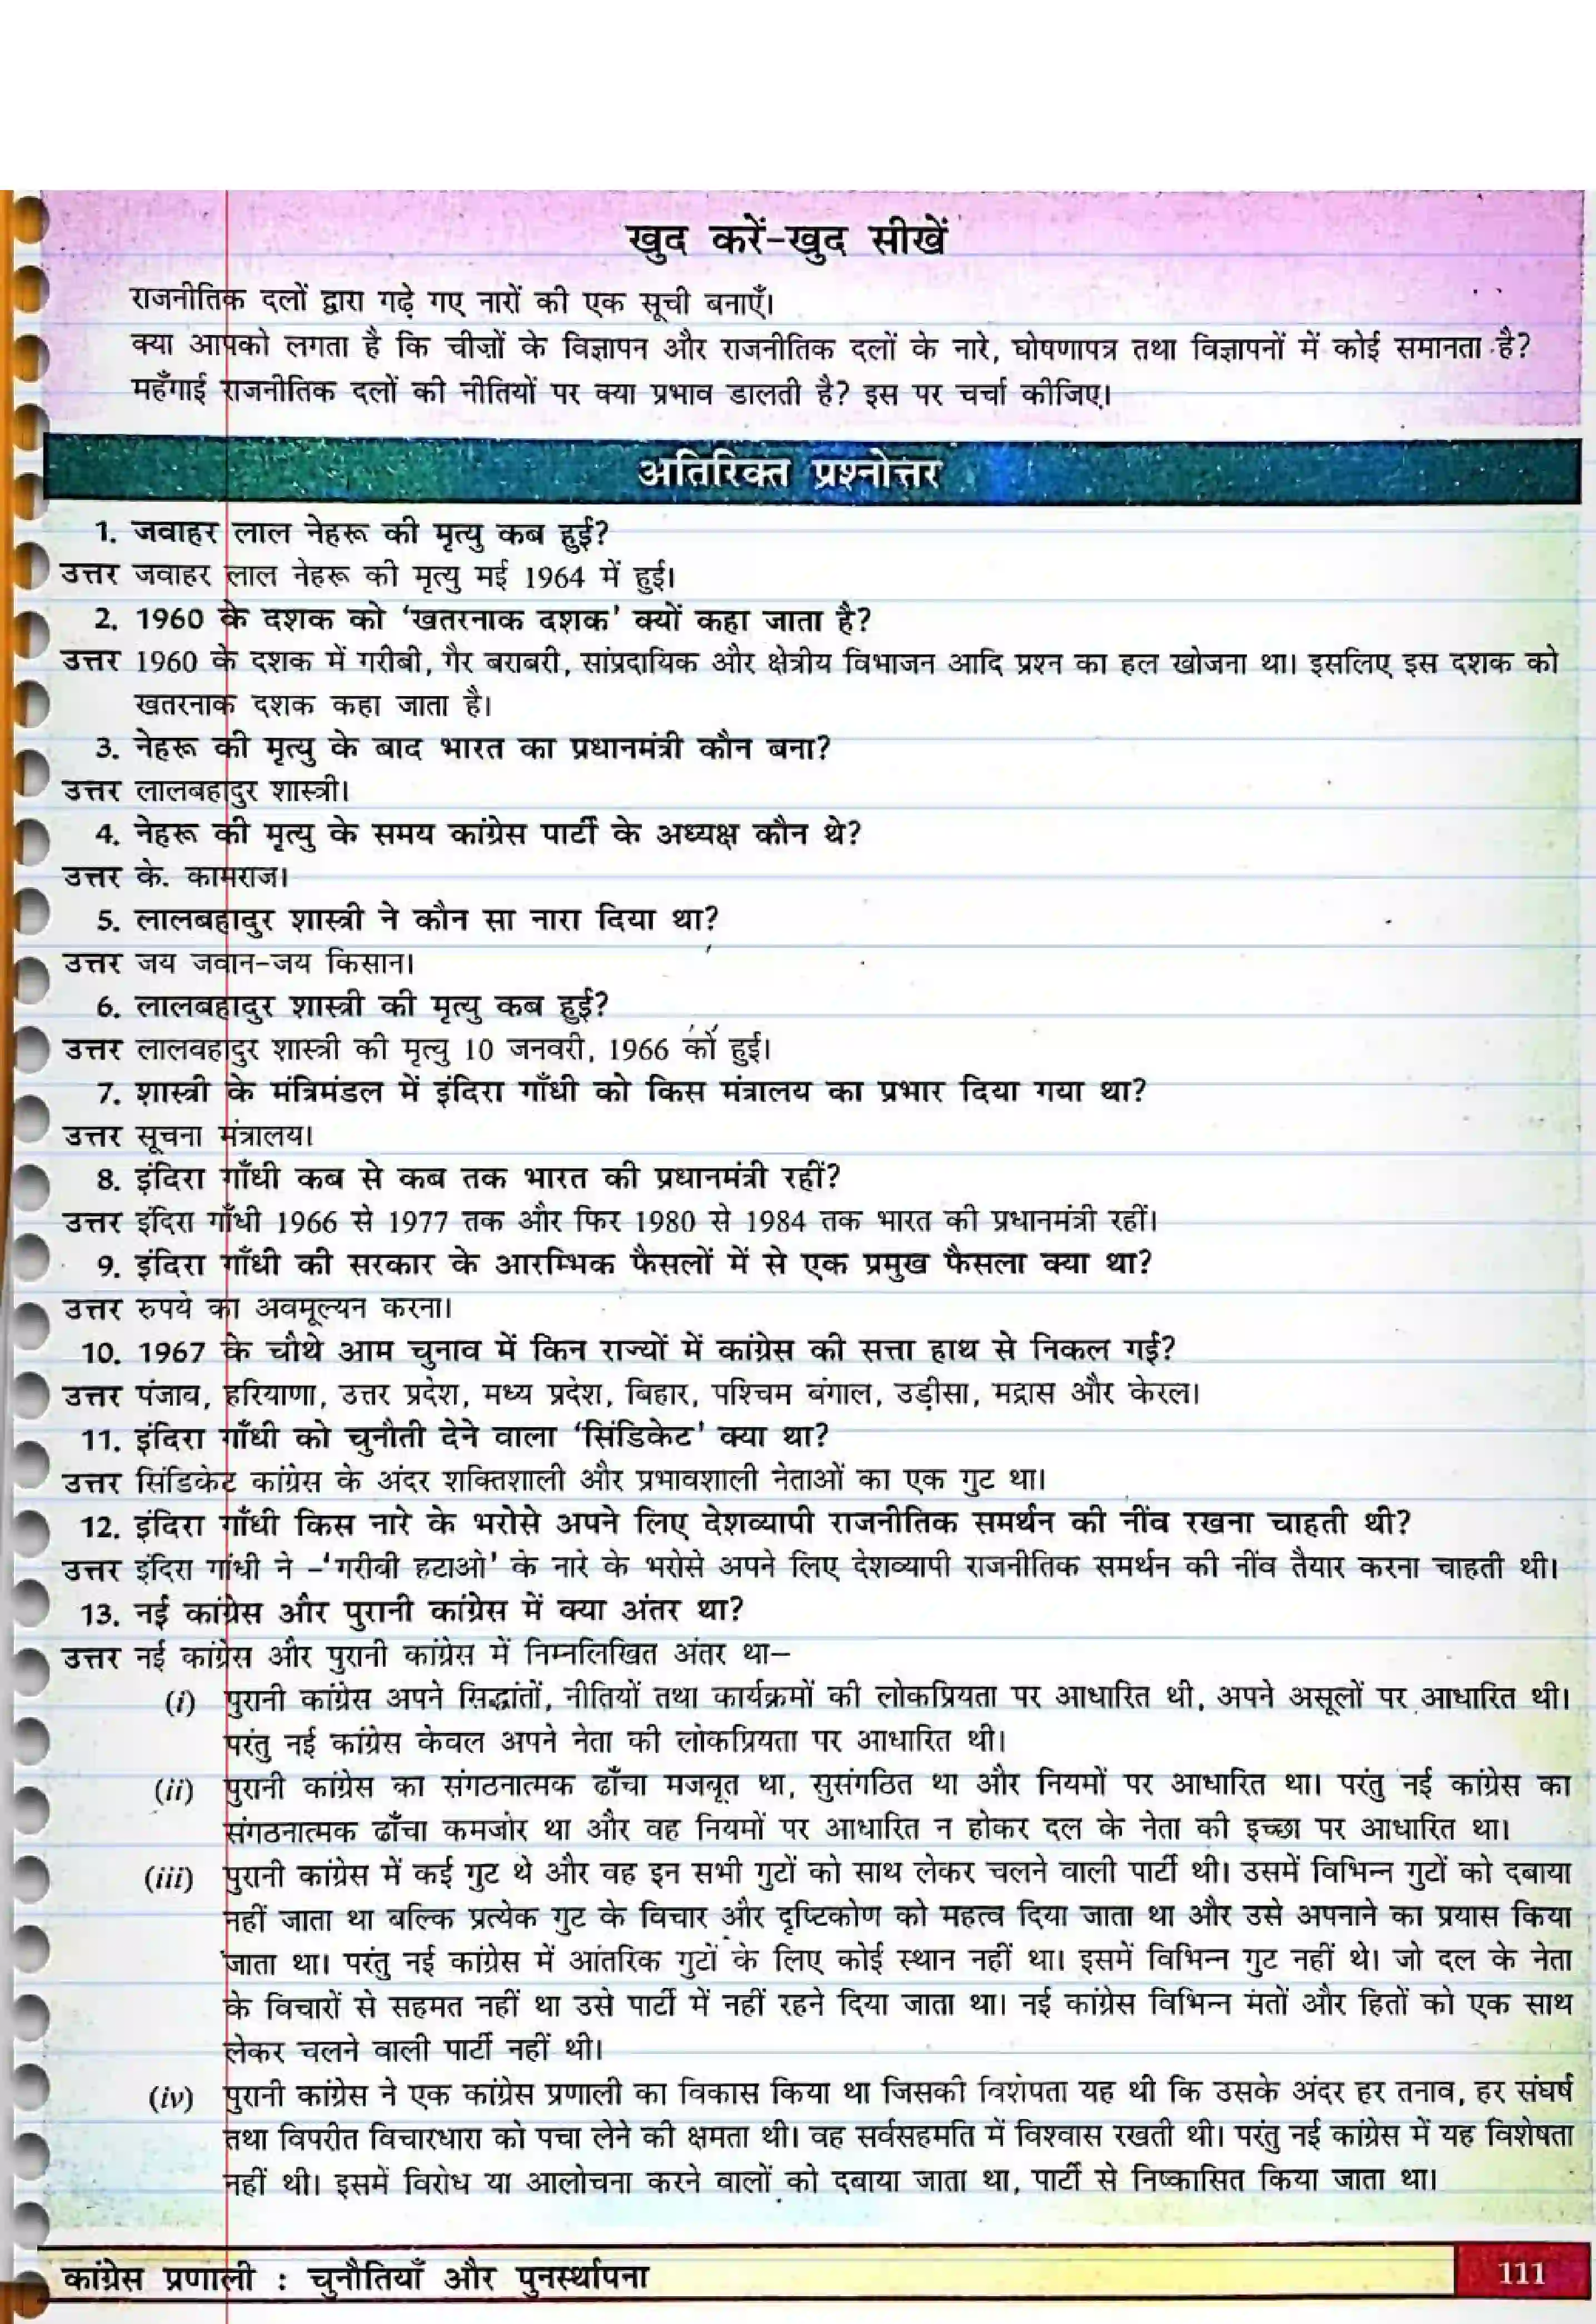 खुद करें-खुद सीखें
राजनीतिक दलों द्वारा गढ़े गए नारों की एक सूची बनाएँ।
क्या आपको लगता है कि चीज़ों के विज्ञापन और राजनीतिक दलों के नारे, घोषणापत्र तथा विज्ञापनों में कोई समानता है?
महँगाई राजनीतिक दलों की नीतियों पर क्या प्रभाव डालती है? इस पर चर्चा कीजिए।
अतिरिक्त प्रश्नोत्तर
1. जवाहर लाल नेहरू की मृत्यु कब हुई?
उत्तर जवाहर लाल नेहरू की मृत्यु मई 1964 में हुई।
2. 1960 के दशक को ‘खतरनाक दशक’ क्यों कहा जाता है?
उत्तर 1960 के दशक में गरीबी, गैर बराबरी, सांप्रदायिक और क्षेत्रीय विभाजन आदि प्रश्न का हल खोजना था। इसलिए इस दशक को
खतरनाक दशक कहा जाता है।
3. नेहरू की मृत्यु के बाद भारत का प्रधानमंत्री कौन बना?
उत्तर लालबहादुर शास्त्री।
4. नेहरू की मृत्यु के समय कांग्रेस पार्टी के अध्यक्ष कौन थे?
उत्तर के. कामराज।
5. लालबहादुर शास्त्री ने कौन सा नारा दिया था?
उत्तर जय जवान-जय किसान।
6. लालबहादुर शास्त्री की मृत्यु कब हुई?
उत्तर लालबहादुर शास्त्री की मृत्यु 10 जनवरी, 1966 को हुई।
7. शास्त्री के मंत्रिमंडल में इंदिरा गाँधी को किस मंत्रालय का प्रभार दिया गया था?
उत्तर सूचना मंत्रालय।
8. इंदिरा गाँधी कब से कब तक भारत की प्रधानमंत्री रहीं?
उत्तर इंदिरा गाँधी 1966 से 1977 तक और फिर 1980 से 1984 तक भारत की प्रधानमंत्री रहीं।
9. इंदिरा गाँधी की सरकार के आरम्भिक फैसलों में से एक प्रमुख फैसला क्या था?
उत्तर रुपये का अवमूल्यन करना।
10. 1967 के चौथे आम चुनाव में किन राज्यों में कांग्रेस की सत्ता हाथ से निकल गई?
उत्तर पंजाब, हरियाणा, उत्तर प्रदेश, मध्य प्रदेश, बिहार, पश्चिम बंगाल, उड़ीसा, मद्रास और केरल।
11. इंदिरा गाँधी को चुनौती देने वाला ‘सिंडिकेट’ क्या था?
उत्तर सिंडिकेट कांग्रेस के अंदर शक्तिशाली और प्रभावशाली नेताओं का एक गुट था।
12. इंदिरा गाँधी किस नारे के भरोसे अपने लिए देशव्यापी राजनीतिक समर्थन की नींव रखना चाहती थी?
उत्तर इंदिरा गांधी ने –‘गरीबी हटाओ’ के नारे के भरोसे अपने लिए देशव्यापी राजनीतिक समर्थन की नींव तैयार करना चाहती थी।
13. नई कांग्रेस और पुरानी कांग्रेस में क्या अंतर था?
उत्तर नई कांग्रेस और पुरानी कांग्रेस में निम्नलिखित अंतर था–
(i) पुरानी कांग्रेस अपने सिद्धांतों, नीतियों तथा कार्यक्रमों की लोकप्रियता पर आधारित थी, अपने असूलों पर आधारित थी।
परंतु नई कांग्रेस केवल अपने नेता की लोकप्रियता पर आधारित थी।
(ii) पुरानी कांग्रेस का संगठनात्मक ढाँचा मजबूत था, सुसंगठित था और नियमों पर आधारित था। परंतु नई कांग्रेस का
संगठनात्मक ढाँचा कमजोर था और वह नियमों पर आधारित न होकर दल के नेता की इच्छा पर आधारित था।
(iii) पुरानी कांग्रेस में कई गुट थे और वह इन सभी गुटों को साथ लेकर चलने वाली पार्टी थी। उसमें विभिन्न गुटों को दबाया
नहीं जाता था बल्कि प्रत्येक गुट के विचार और दृष्टिकोण को महत्व दिया जाता था और उसे अपनाने का प्रयास किया
जाता था। परंतु नई कांग्रेस में आंतरिक गुटों के लिए कोई स्थान नहीं था। इसमें विभिन्न गुट नहीं थे। जो दल के नेता
के विचारों से सहमत नहीं था उसे पार्टी में नहीं रहने दिया जाता था। नई कांग्रेस विभिन्न मतों और हितों को एक साथ
लेकर चलने वाली पार्टी नहीं थी।
(iv) पुरानी कांग्रेस ने एक कांग्रेस प्रणाली का विकास किया था जिसकी विशेषता यह थी कि उसके अंदर हर तनाव, हर संघर्ष
तथा विपरीत विचारधारा को पचा लेने की क्षमता थी। वह सर्वसहमति में विश्वास रखती थी। परंतु नई कांग्रेस में यह विशेषता
नहीं थी। इसमें विरोध या आलोचना करने वालों को दबाया जाता था, पार्टी से निष्कासित किया जाता था।
कांग्रेस प्रणाली : चुनौतियाँ और पुनर्स्थापना 111